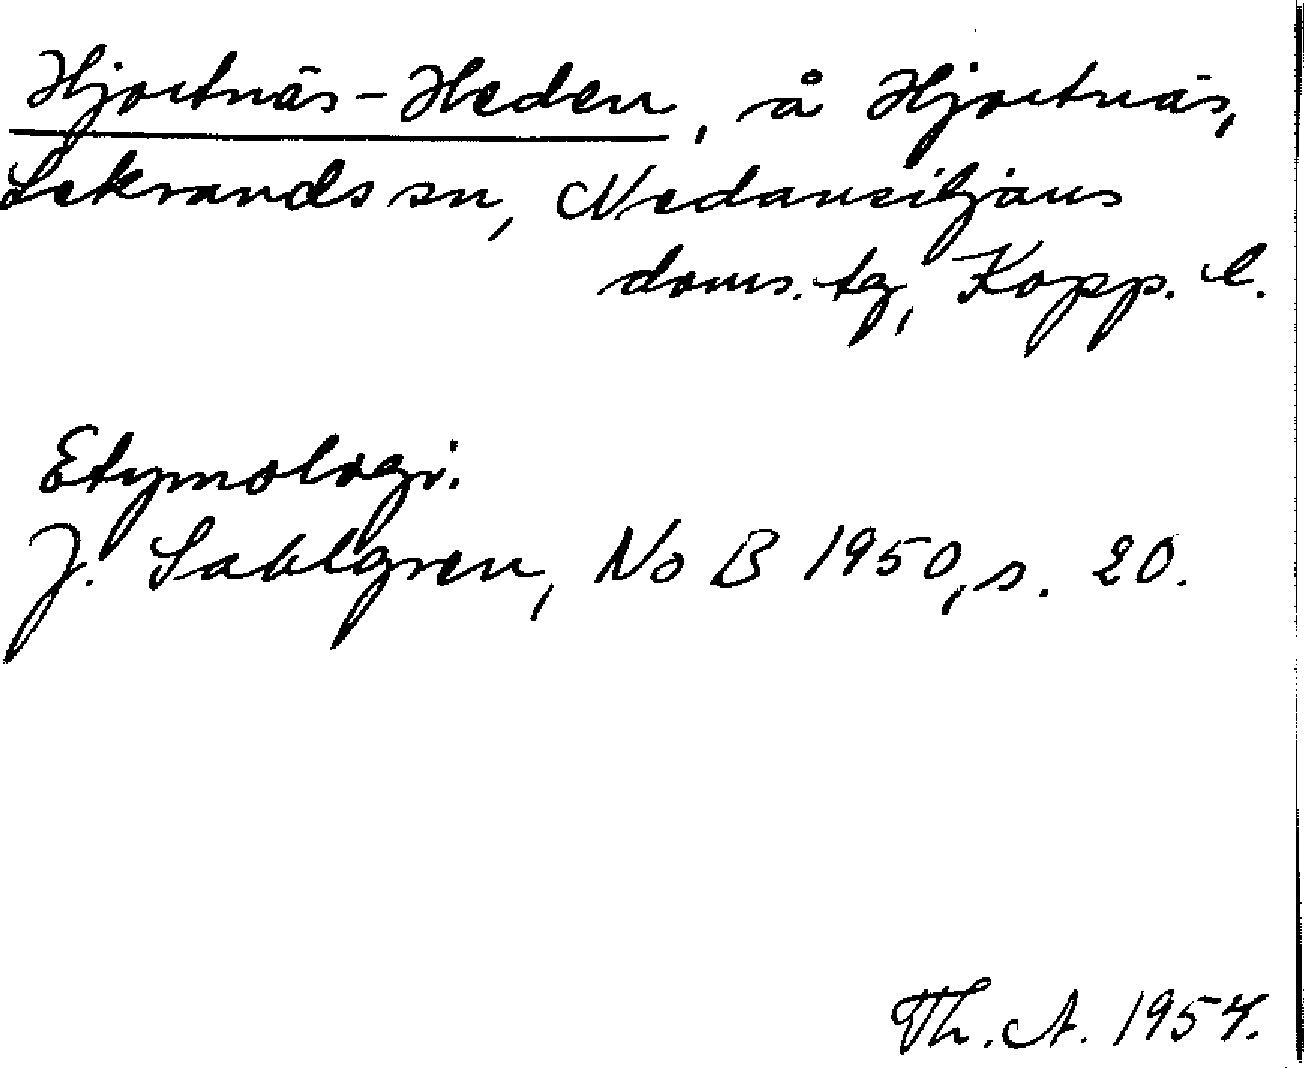 Hjortnäs-Heden, å Hjortnäs,
Leksands sn, Nedansiljans
doms. tg, Kopp. l.
Etymologi.
J. Sahlgren, NoB 1950, s. 20.
Th. A. 1954.